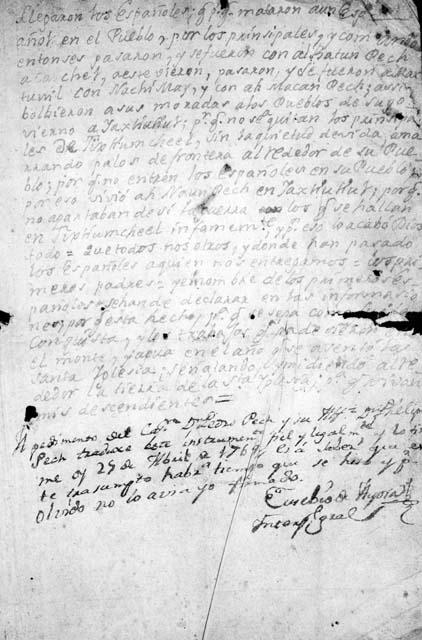 llegaron los Españoles; q̃ p.q̃ mataron a un Esp
añol en el Pueblo, y por los principales, y com
entonses pasaron, y se fueron con ah Natun Pech
a Cachet, aeste vieron, pasaron, y se fueron a
tunil con Nachi May, y con ah Macan Pech; assi
bolbieron a sus moradas a los Pueblos de su go
vierno a Yaxkukul; p.q̃ no seguian los prinsipa
les de Tixkumcheel, sin la quietud devida, ama
rrando palos de frontera al rededor de su Pue
blo; por q̃ no entren los Españoles en su Pueblo, y
por eso vivió ah Naun Pech en Yaxkukul; por q̃
no apartaban de sí la guerra los q̃ se hallan
en Tixkumcheel infamem.te y p.r eso lo acabo Dios
todo = Que todos nosotros, y donde han pasado
los Españoles a quien nos entregamos = los pri
meros padres = y en nombre de los primeros es
pañoles = se ha de declarar en las informasio
nes, por q̃ esta hecho, p.a q̃ se sepa com
conquista, y los trabajos q̃ pade
el monte, y agua en el año q̃ se asento la
Santa Yglesia; señalando, y midiendo al re
dedor la tierra de la S.ta Yglesia; p.a q̃ vivan
mis desendientes =
A pedimento del Cap.n D.n Pedro Pech y su Hijo Phelipe
Pech traduxe este instrumen.to fiel, y legalm.te y lo fir
me oy 25 de Abril de 1769. Es a saber que es
te trasumpto habrá tiempo que se hiso y p.r
olvido no lo avia yo firmado.
Eusebio de Ayora
Interp. Gral